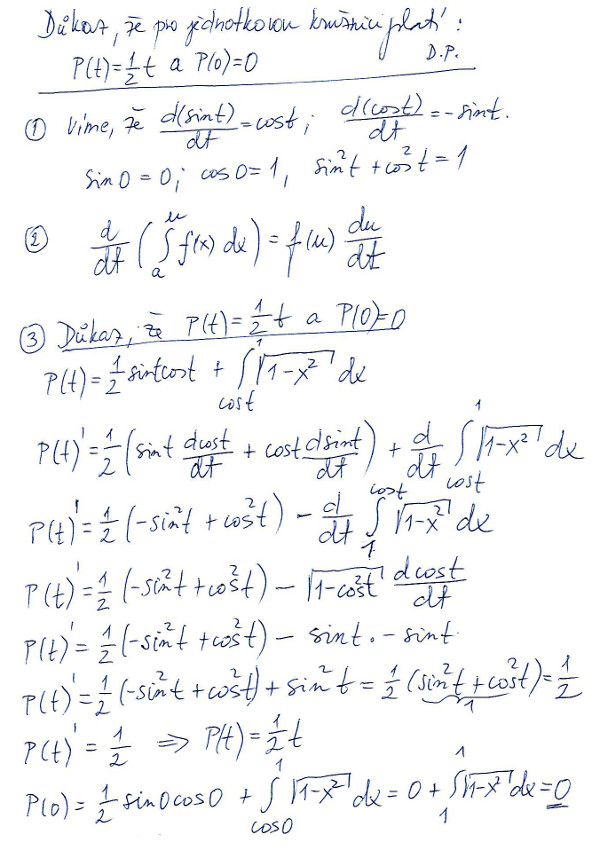 Důkaz, že pro jednotkovou kružnici platí:
P(t)=½t a P(0)=0 D.P.
① Víme, že d(sint)/dt = cost; d(cost)/dt = -sint.
sin0=0; cos0=1, sin²t+cos²t=1
② d/dt (∫ₐᵘ f(x) dx) = f(u) du/dt
③ Důkaz, že P(t)=½t a P(0)=0
P(t)=½ sintcost + ∫_{cost}^{1} √(1-x²) dx
P(t)'=½ (sint dcost/dt + cost dsint/dt) + d/dt ∫_{cost}^{1} √(1-x²) dx
P(t)'=½ (-sin²t+cos²t) - d/dt ∫_{1}^{cost} √(1-x²) dx
P(t)'=½ (-sin²t+cos²t) - √(1-cos²t) dcost/dt
P(t)'=½ (-sin²t+cos²t) - sint.-sint
P(t)'=½ (-sin²t+cos²t)+sin²t = ½ (sin²t+cos²t)=½
1
P(t)'=½ ⇒ P(t)=½t
P(0)=½ sin0cos0 + ∫_{cos0}^{1} √(1-x²) dx = 0+∫_{1}^{1} √(1-x²) dx=0